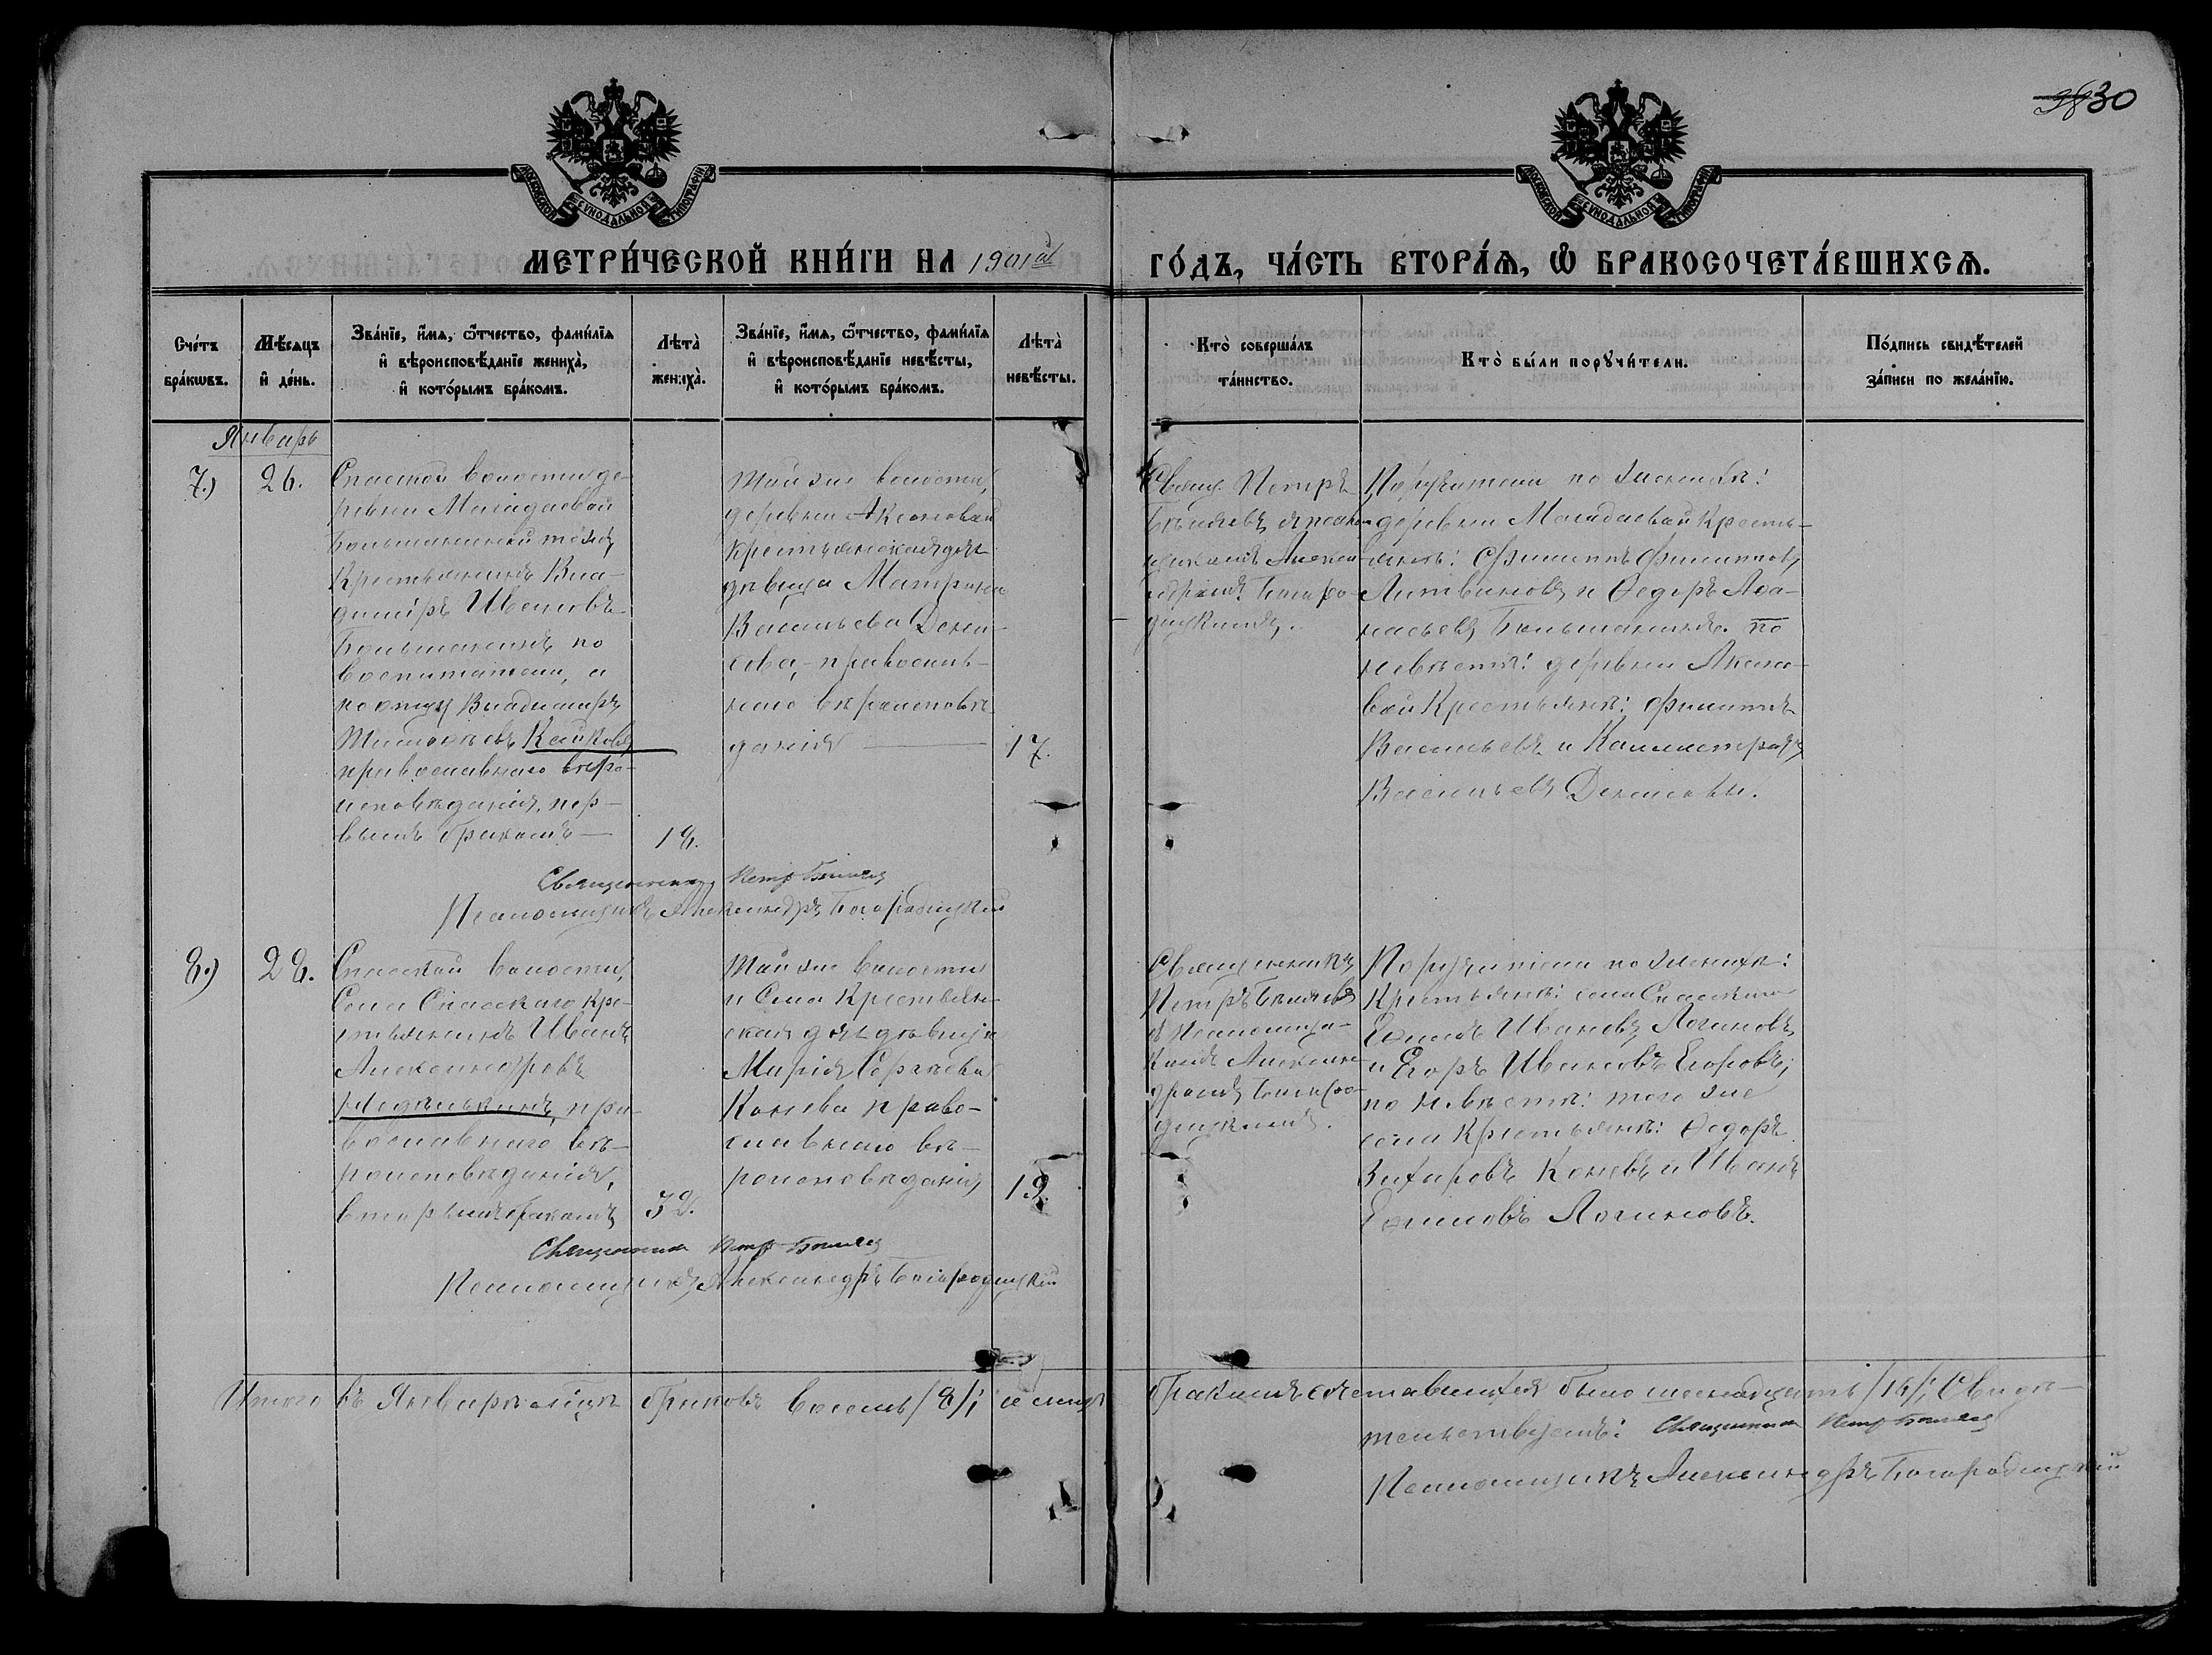 30
МОСКОВСКОЙ СУНОДАЛЬНОЙ ТИПОГРАФІИ
МОСКОВСКОЙ СУНОДАЛЬНОЙ ТИПОГРАФІИ
МЕТРИ́ЧЕСКОЙ КНИ́ГИ НА 1901й
ГО́ДЪ, ЧА́СТЬ ВТОРА́Ѧ, Ѽ БРАКОСОЧЕТА́ВШИХСѦ.
Сче́тъ
бра́кѡвъ.
Мѣ́сѧцъ
и҆ де́нь.
Зва́нїе, и҆́мѧ, ѻ҆́тчество, фами́лїѧ
и҆ вѣроисповѣ́данїе жениха̀,
и҆ кото́рымъ бра́комъ.
Лѣ́та̀
жениха̀.
Зва́нїе, и҆́мѧ, ѻ҆́тчество, фами́лїѧ
и҆ вѣроисповѣ́данїе невѣ́сты,
и҆ кото́рымъ бра́комъ.
Лѣ́та̀
невѣ́сты.
Кто̀ соверша́лъ
та́инство.
Кто̀ бы́ли порꙋчи́тели.
По́дпись свидѣ́телей
за́писи по жела́нїю.
Январь
7.)
26.
Спасской волости де-
ревни
крестьянинъ Вла-
диміръ Ивановъ
Большанинъ по
воспитателю, а
по отцу Владиміръ
Кайковъ
православнаго вѣро-
исповѣданія, пер-
вымъ бракомъ
18.
Той же волости,
деревни Аксеновой
крестьянская дочь
дѣвица Матрона
Васильева Дени-
сова, православ-
наго вѣроисповѣ-
данія
17.
Свящ. Петръ
Бѣляевъ съ псалом-
щикомъ Алексан-
дромъ Богоро-
дицкимъ.
Поручители по женихѣ:
деревни крестья-
яне: Филиппъ Филипповъ
Литвиновъ и Ѳедоръ Аѳа-
насьевъ Большанинъ. по
невѣстѣ: деревни Аксено-
вой крестьяне: Филиппъ
Васильевъ и Каллистратъ
Васильевъ Денисовы.
Священникъ Петр Бѣляев
Псаломщикъ Александръ Богородицкій
8.)
28.
Спасской волости,
села Спасскаго кре-
стьянинъ Иванъ
Александровъ
Недѣлькинъ, пра-
вославнаго вѣ-
роисповѣданія,
вторымъ бракомъ
38.
Той же волости
и села крестьян-
ская дочь дѣвица
Марія Сергѣева
Конева право-
славнаго вѣ-
роисповѣданія
19.
Священникъ
Петръ Бѣляевъ
съ псаломщи-
комъ Алексан-
дромъ Богоро-
дицкимъ.
Поручители по женихѣ:
крестьяне: села Спасскаго
Ефимъ Ивановъ Логиновъ
и Егоръ Ивановъ Егоровъ;
по невѣстѣ: того же
села крестьяне: Ѳедоръ
Захаровъ Коневъ и Иванъ
Ефимовъ Логиновъ.
Священник Петр Бѣляев
Псаломщикъ Александръ Богородицкій
Итого въ Январѣ мѣсяцѣ браковъ восемь /8/; а лицъ бракомъ сочетавшихся было шестнадцать /16/; Свидѣ-
тельствуемъ: Священник Петр Бѣляев
Псаломщикъ Александръ Богородицкій